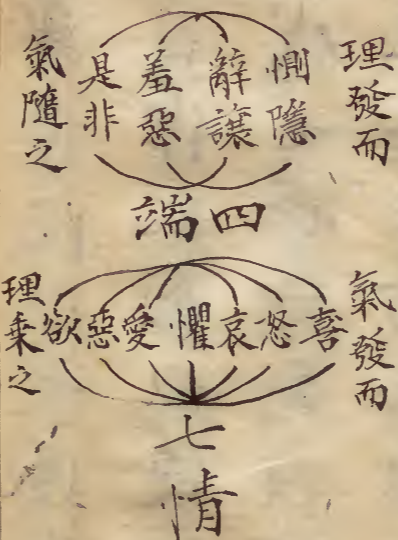 理發而
惻隱
辭讓
羞惡
是非
氣隨之
四端
氣發而
喜
怒
哀
懼
愛
惡
欲
理乗之
七情